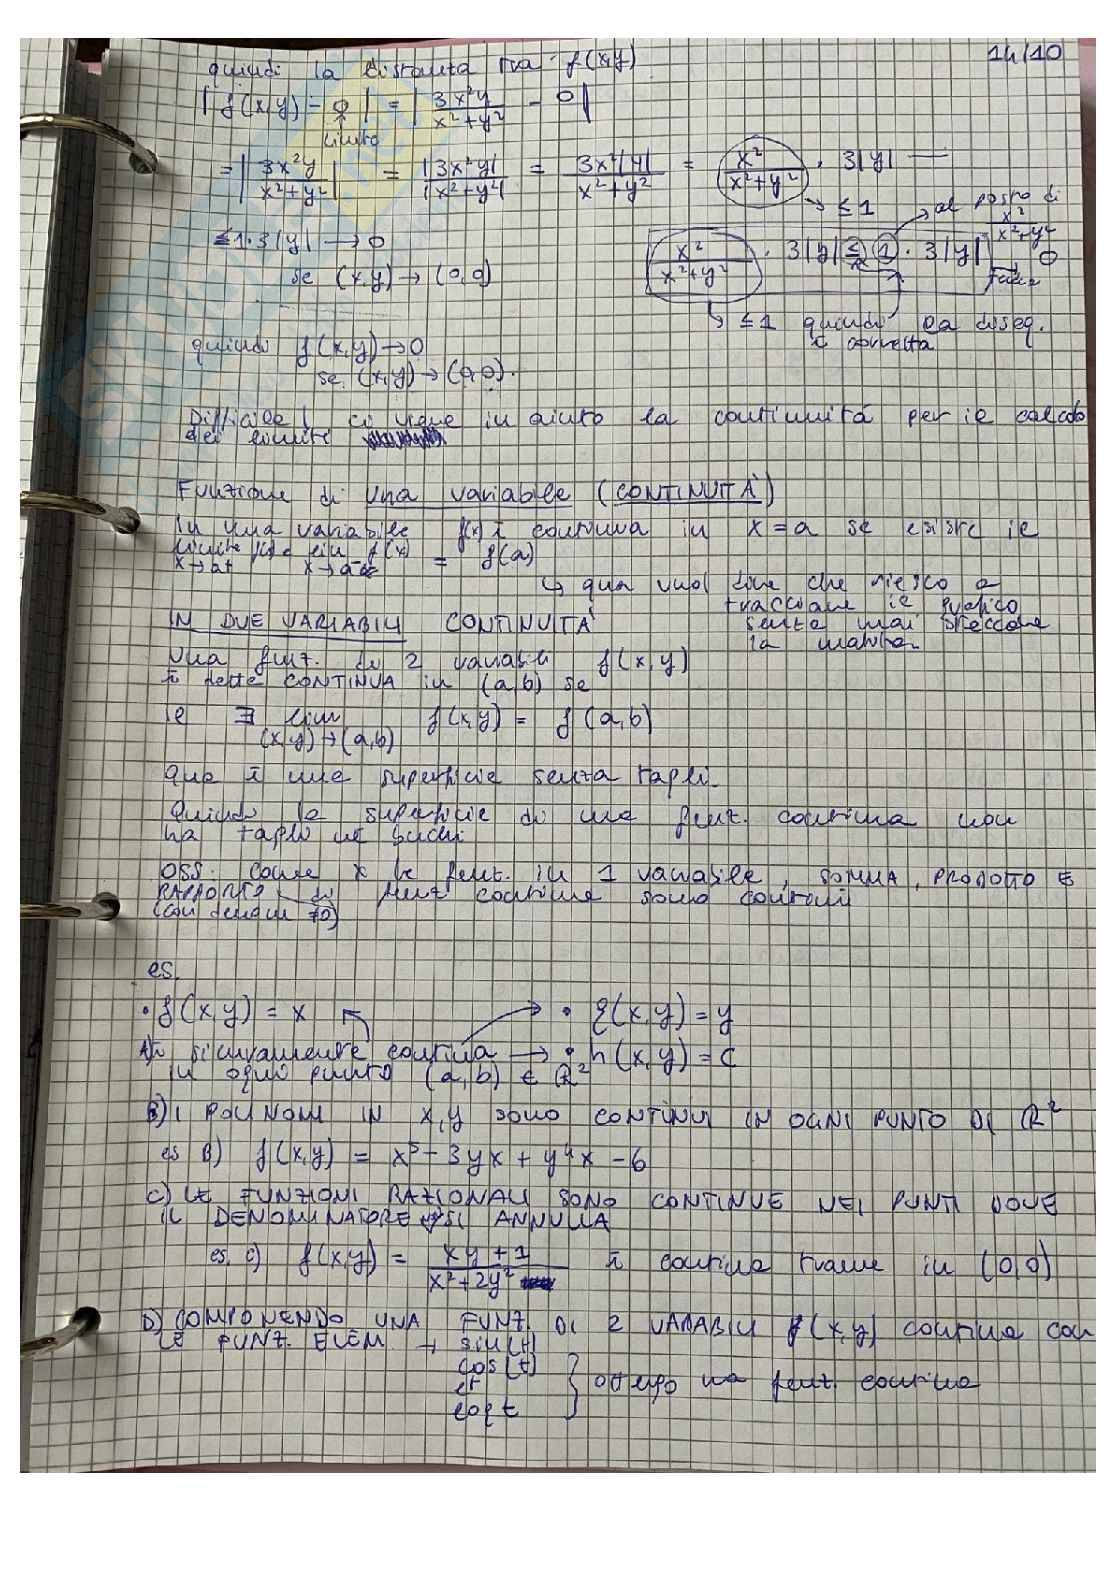 14/10
quindi la distanza tra f(x,y)
|f(x,y) - 0| = |3x²y / x²+y² - 0|
limite
= |3x²y / x²+y²| = |3x²y| / |x²+y²| = 3x²|y| / x²+y² = x² / x²+y² · 3|y|
→ ≤ 1 → al posto di x² / x²+y²
≤ 1·3|y| → 0
se (x,y) → (0,0)
x² / x²+y² · 3|y| ≤ 1 · 3|y| → 0
→ ≤ 1 quindi la diseq.
è corretta
quindi f(x,y) → 0
se (x,y) → (0,0).
Difficile! ci viene in aiuto la continuità per il calcolo
dei limiti
Funzione di una variabile (CONTINUITÀ)
In una variabile f(x) è continua in x = a se esiste il
limite lim f(x) = f(a)
x→a+ x→a-
↳ qua vuol dire che riesco a
tracciare il grafico
senza mai staccare
la matita
IN DUE VARIABILI CONTINUITÀ
Una funz. di 2 variabili f(x,y)
è detta CONTINUA in (a,b) se
∃ lim f(x,y) = f(a,b)
(x,y)→(a,b)
qua è una superficie senza tagli.
Quindi la superficie di una funz. continua non
ha tagli né buchi
OSS. come x le funz. in 1 variabile, SOMMA, PRODOTTO E
RAPPORTO di funz continue sono continui
(con denom ≠0)
es.
• f(x,y) = x • g(x,y) = y
A) È sicuramente continua → • h(x,y) = c
in ogni punto (a,b) ∈ R²
B) I POLINOMI IN x,y SONO CONTINUI IN OGNI PUNTO DI R²
es B) f(x,y) = x⁵ - 3yx + y⁴x - 6
C) LE FUNZIONI RAZIONALI SONO CONTINUE NEI PUNTI DOVE
IL DENOMINATORE SI ANNULLA
es. c) f(x,y) = xy + 1 / x² + 2y² è continua tranne in (0,0)
D) COMPONENDO UNA FUNZ. DI 2 VARIABILI f(x,y) continua con
LE FUNZ. ELEM → sin(t)
cos(t)
eᵗ } ottengo una funz. continua
log t